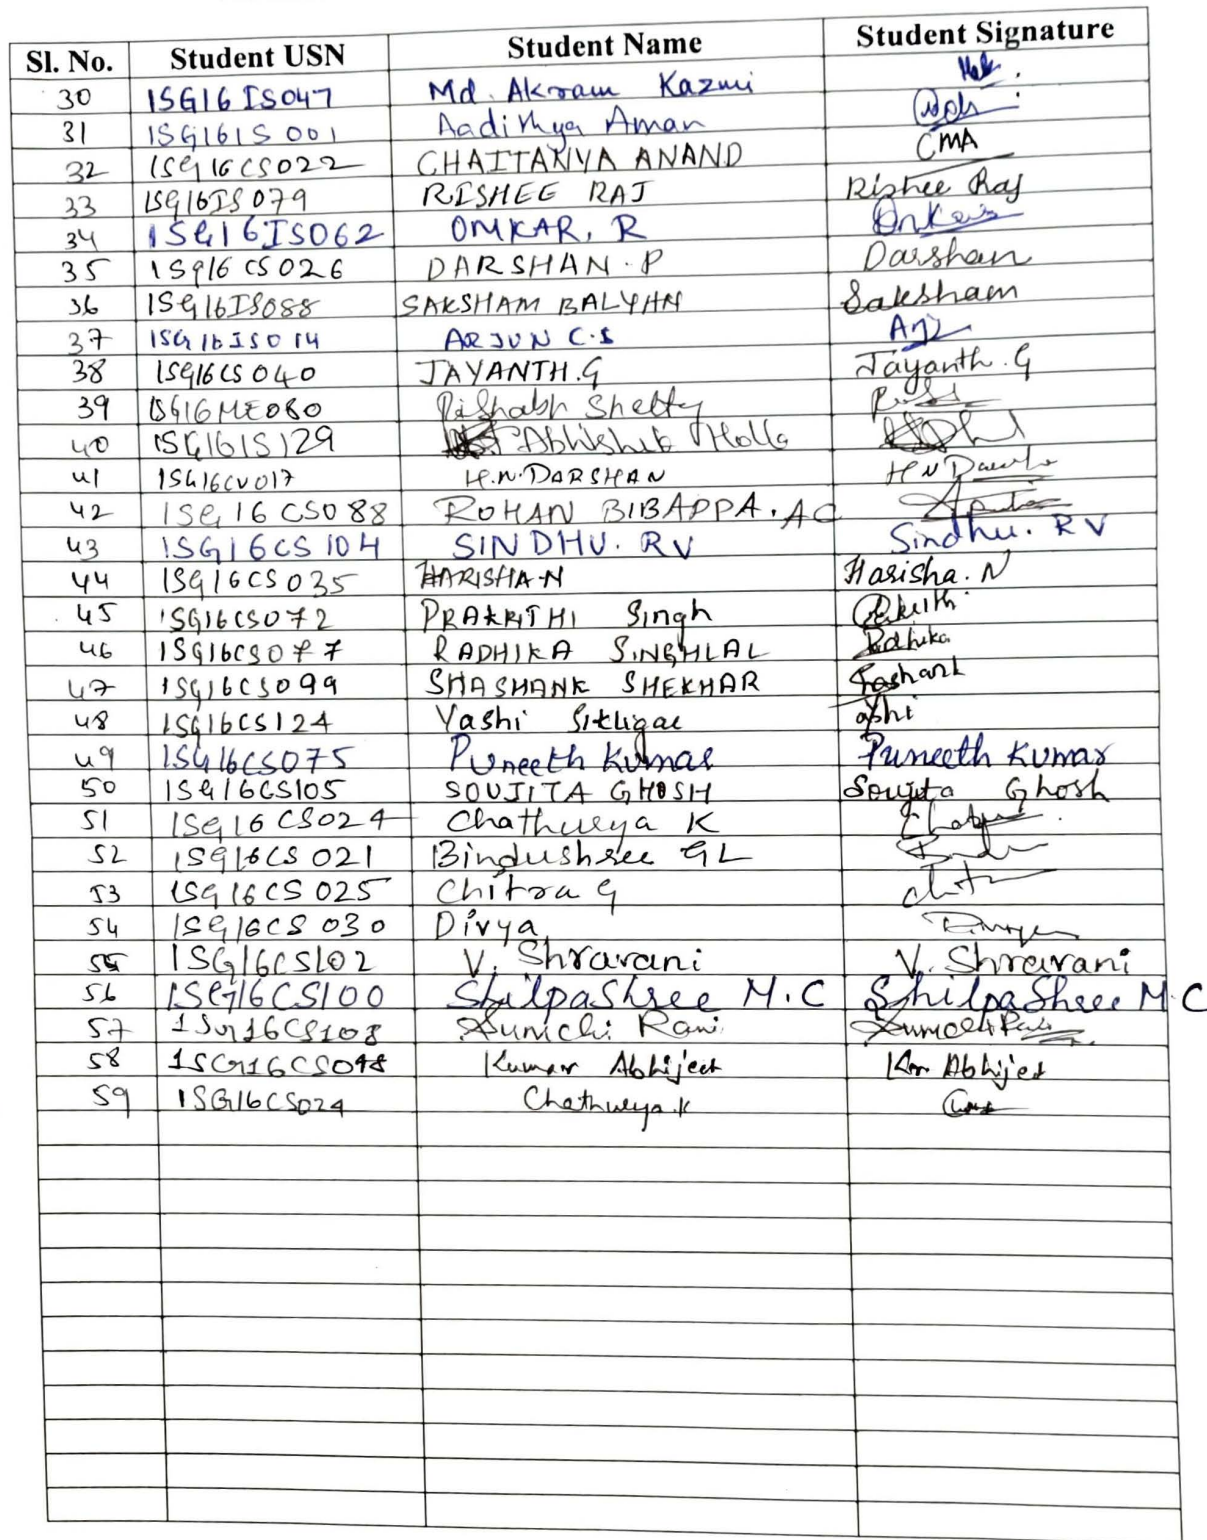 Sl. No. Student USN Student Name Student Signature
30 1SG16IS047 Md. Akram Kazmi
31 1SG16IS001 Aadithya Aman
32 1SG16CS022 CHAITANYA ANAND CMA
33 1SG16IS079 RISHEE RAJ Rishee Raj
34 1SG16IS062 OMKAR. R Omkar
35 1SG16CS026 DARSHAN.P Darshan
36 1SG16IS088 SAKSHAM BALYAN Saksham
37 1SG16IS014 ARJUN C.S
38 1SG16CS040 JAYANTH.G Jayanth.G
39 1SG16ME080 Rishabh Shetty
40 1SG16IS129 Abhishek Holla
41 1SG16CV017 H.N.DARSHAN H N
42 1SG16CS088 ROHAN BIBAPPA.AC
43 1SG16CS104 SINDHU. RV Sindhu. RV
44 1SG16CS035 HARISHA.N Harisha.N
45 1SG16CS072 PRAKRITHI Singh
46 1SG16CS077 RADHIKA SINGHLAL Radhika
47 1SG16CS099 SHASHANK SHEKHAR Shashank
48 1SG16CS124 Yashi
49 1SG16CS075 Puneeth Kumar Puneeth Kumar
50 1SG16CS105 SOUJITA GHOSH Soujita Ghosh
51 1SG16CS024 Chathurya K
52 1SG16CS021 Bindushree GL
53 1SG16CS025 Chitra G
54 1SG16CS030 Divya Divya
55 1SG16CS102 V. Shravani V. Shravani
56 1SG16CS100 Shilpashree M.C Shilpashree M.C
57 1SG16CS108 Rani
58 1SG16CS048 Kumar Abhijeet Abhijeet
59 1SG16CS024 Chathurya.K